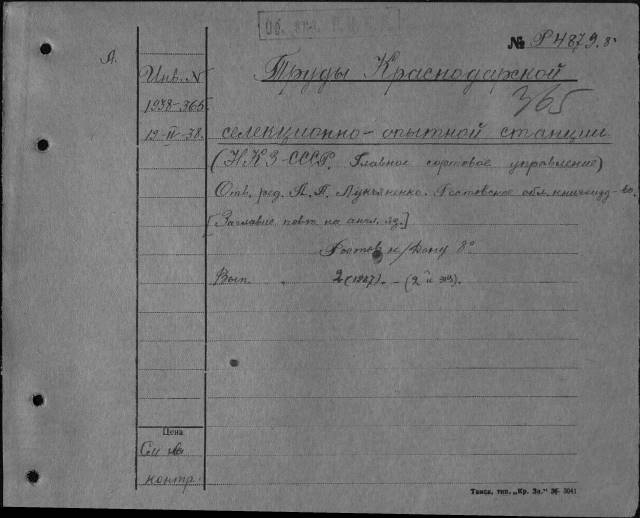 Об. отд.
№ P4879. 8°
Л.
Инв. №
1938-365
19-II-38.
Труды Краснодарской
365
селекционно-опытной станции.
(НКЗ-СССР. Главное сортовое управление)
Отв. ред. П. П. Лукьяненко. Ростовское обл. книгоизд-во.
[Заглавие повт. на англ. яз.]
Ростов н/Дону 8°
Вып. 2 (1937). - (2й экз).
Цена
См
контр.
Тамск. тип. „Кр. Зн." Зб. 3041